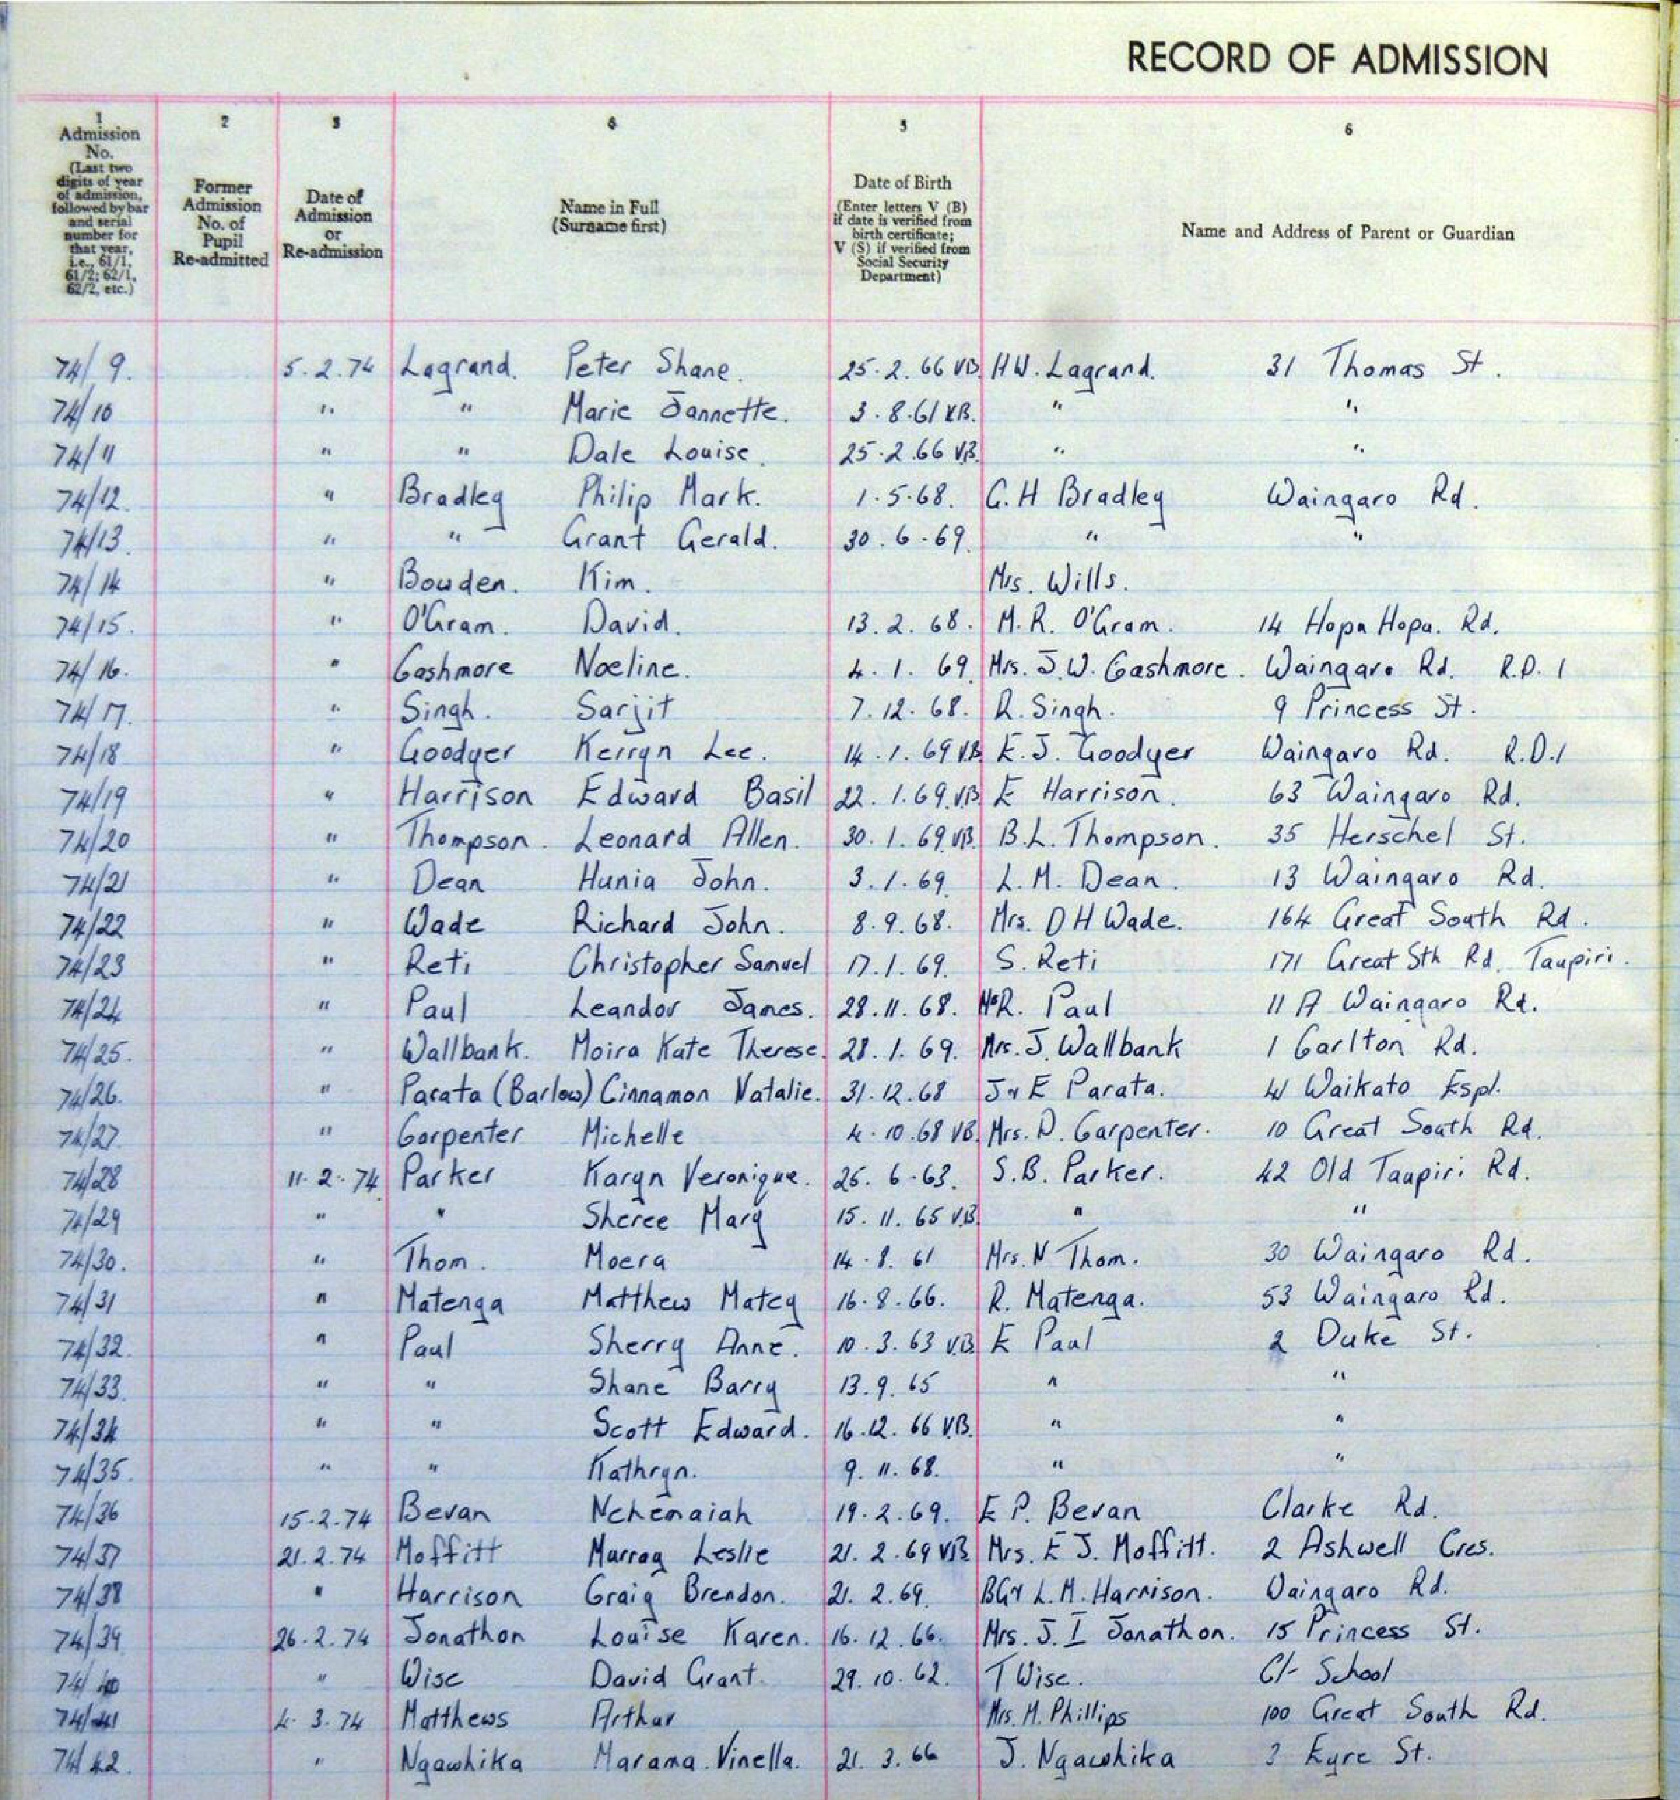 RECORD OF ADMISSION
1 2 3 4 5 6
Admission No. (Last two digits of year of admission, followed by bar and serial number for that year, i.e., 61/1, 61/2; 62/1, 62/2, etc.)
Former Admission No. of Pupil Re-admitted
Date of Admission or Re-admission
Name in Full (Surname first)
Date of Birth (Enter letters V (B) if date is verified from birth certificate; V (S) if verified from Social Security Department)
Name and Address of Parent or Guardian
74/9. 5.2.74 Lagrand. Peter Shane. 25.2.66 VB H.W. Lagrand. 31 Thomas St.
74/10 " " Marie Jannette. 3.8.61 VB. " "
74/11 " " Dale Louise. 25.2.66 VB. " "
74/12. " Bradley Philip Mark. 1.5.68. C.H Bradley Waingaro Rd.
74/13. " " Grant Gerald. 30.6.69. " "
74/14 " Bowden. Kim. Mrs. Wills.
74/15. " O'Gram. David. 13.2.68. M.R. O'Gram. 14 Hopu Hopu. Rd.
74/16. " Cashmore Noeline. 4.1.69. Mrs. J.W. Cashmore. Waingaro Rd. R.D.1
74/17. " Singh. Sarjit 7.12.68. R. Singh. 9 Princess St.
74/18 " Goodyer Kerryn Lee. 14.1.69 V.B E.J. Goodyer Waingaro Rd. R.D.1
74/19 " Harrison Edward Basil 22.1.69.VB E Harrison. 63 Waingaro Rd.
74/20 " Thompson. Leonard Allen. 30.1.69.VB. B.L. Thompson. 35 Herschel St.
74/21 " Dean Hunia John. 3.1.69. L.M. Dean. 13 Waingaro Rd.
74/22 " Wade Richard John. 8.9.68. Mrs. D H Wade. 164 Great South Rd.
74/23 " Reti Christopher Samuel 17.1.69. S. Reti 171 Great Sth Rd. Taupiri.
74/24 " Paul Leandor James. 28.11.68. R. Paul 11 A Waingaro Rd.
74/25. " Wallbank. Moira Kate Therese. 28.1.69. Mrs. J. Wallbank 1 Carlton Rd.
74/26. " Parata (Barlow) Cinnamon Natalie. 31.12.68 J & E Parata. 41 Waikato Espl.
74/27. " Carpenter Michelle 4.10.68 VB. Mrs. D. Carpenter. 10 Great South Rd.
74/28 11.2.74 Parker Karyn Veronique. 26.6.63. S.B. Parker. 42 Old Taupiri Rd.
74/29 " " Sheree Mary 15.11.65 V.B. " "
74/30. " Thom. Moera 14.8.61 Mrs. N Thom. 30 Waingaro Rd.
74/31 " Matenga Matthew Matey 16.8.66. R. Matenga. 53 Waingaro Rd.
74/32. " Paul Sherry Anne. 10.3.63 V.B. E Paul 2 Duke St.
74/33. " " Shane Barry 13.9.65 " "
74/34 " " Scott Edward. 16.12.66 V.B. " "
74/35. " " Kathryn. 9.11.68. " "
74/36 15.2.74 Bevan Nehemaiah 19.2.69. E P. Bevan Clarke Rd.
74/37 21.2.74 Moffitt Murray Leslie 21.2.69 VB Mrs. E J. Moffitt. 2 Ashwell Cres.
74/38 " Harrison Craig Brendon. 21.2.69. BG & L.M. Harrison. Waingaro Rd.
74/39 26.2.74 Jonathon Louise Karen. 16.12.66. Mrs. J. I Jonathon. 15 Princess St.
74/40 " Wise David Grant. 29.10.62. T Wise. C/- School
74/41 4.3.74 Matthews Arthur Mrs. M. Phillips 100 Great South Rd.
74/42. " Ngawhika Marama Vinella. 21.3.66 J. Ngawhika 3 Eyre St.